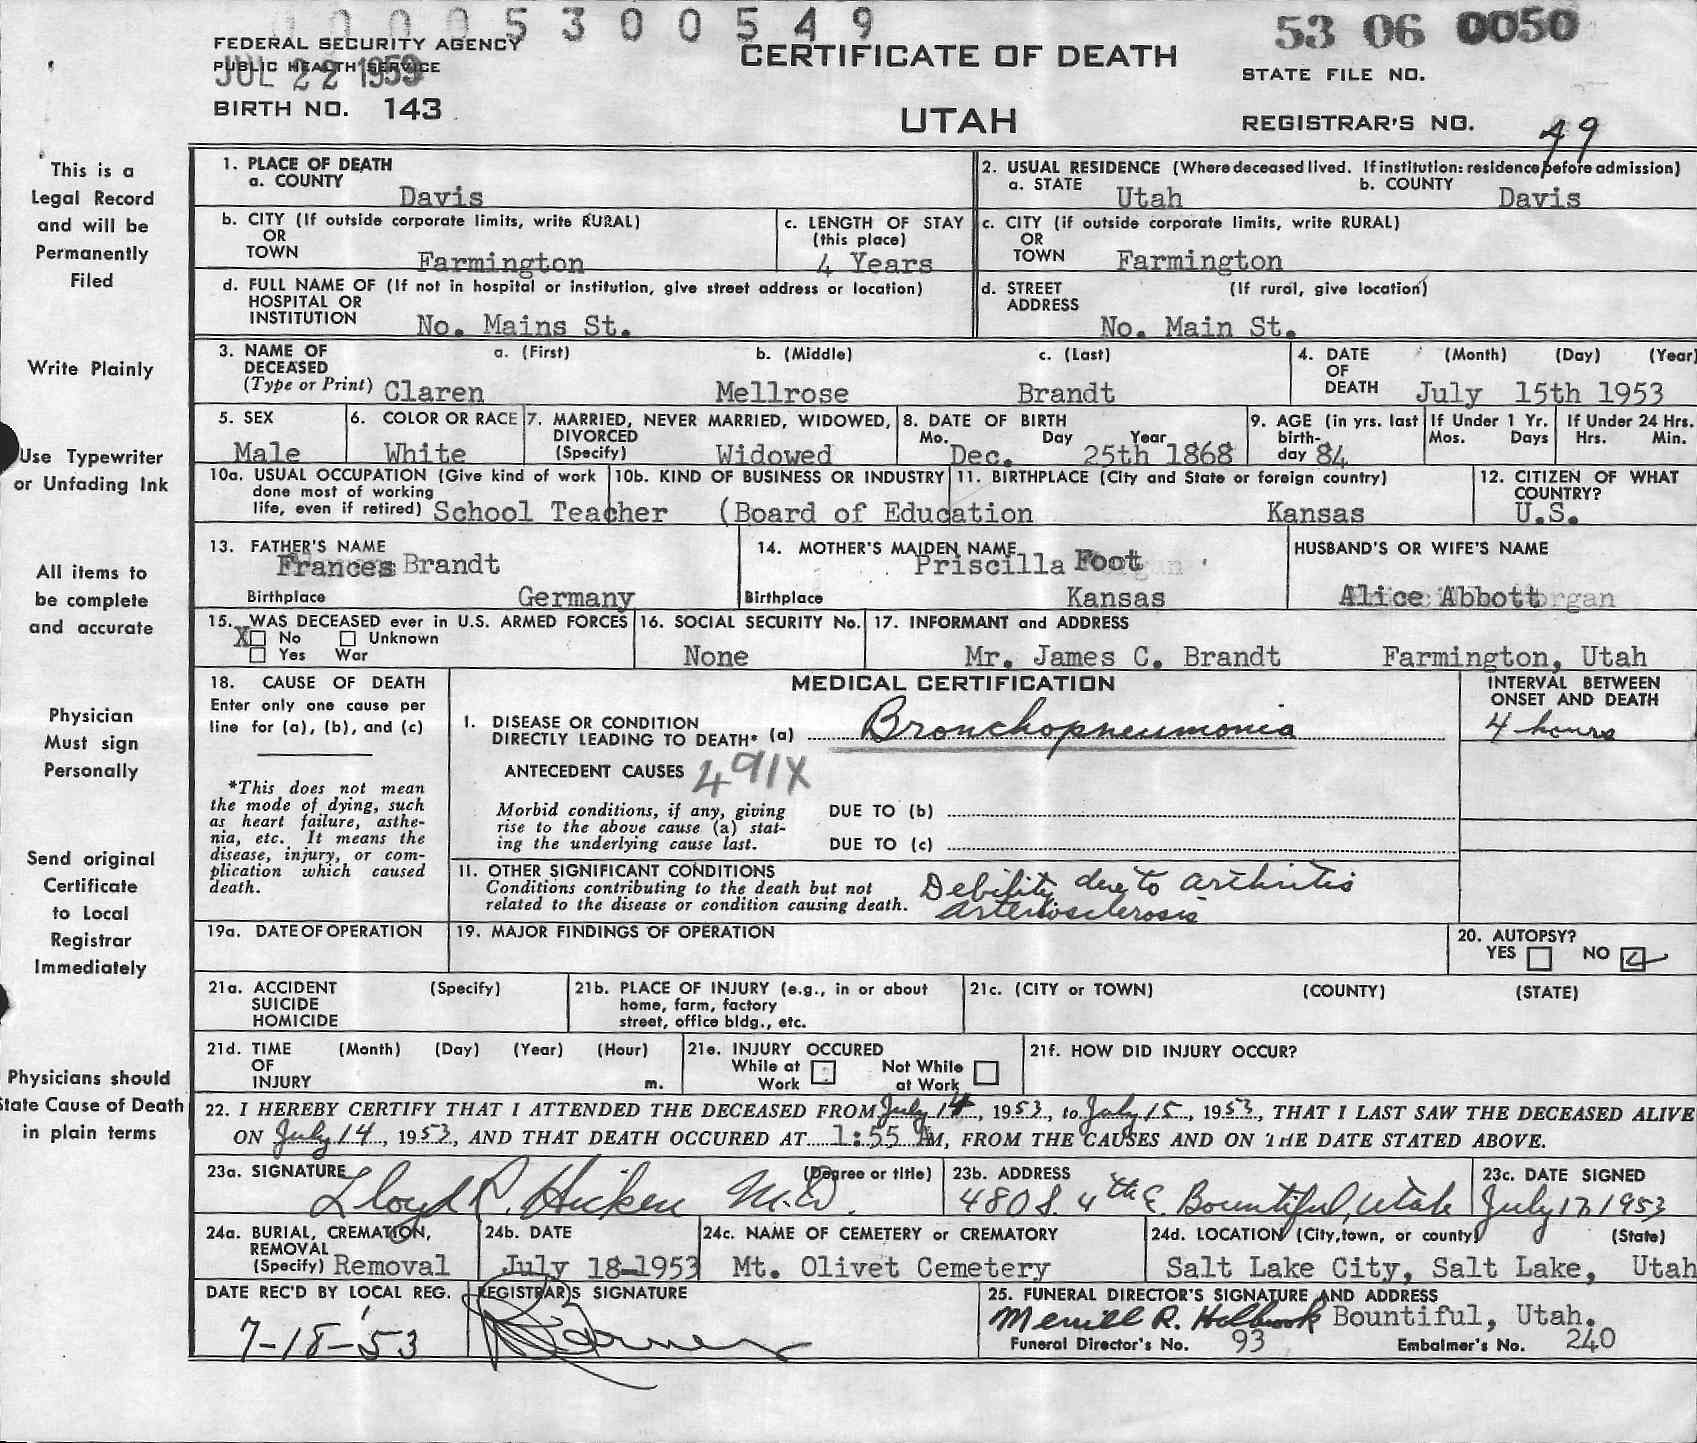 0 0 0 0 5 3 0 0 5 4 9
53 06 0050
FEDERAL SECURITY AGENCY
PUBLIC HEALTH SERVICE
JUL 22 1953
CERTIFICATE OF DEATH
STATE FILE NO.
BIRTH NO. 143
UTAH
REGISTRAR'S NO. 49
This is a
Legal Record
and will be
Permanently
Filed
1. PLACE OF DEATH
a. COUNTY
Davis
2. USUAL RESIDENCE (Where deceased lived. If institution: residence before admission)
a. STATE Utah b. COUNTY Davis
b. CITY (If outside corporate limits, write RURAL)
OR
TOWN Farmington
c. LENGTH OF STAY
(this place)
4 Years
c. CITY (if outside corporate limits, write RURAL)
OR
TOWN Farmington
d. FULL NAME OF (If not in hospital or institution, give street address or location)
HOSPITAL OR
INSTITUTION No. Mains St.
d. STREET (If rural, give location)
ADDRESS
No. Main St.
Write Plainly
3. NAME OF a. (First) b. (Middle) c. (Last)
DECEASED
(Type or Print) Claren Mellrose Brandt
4. DATE (Month) (Day) (Year)
OF
DEATH July 15th 1953
Use Typewriter
or Unfading Ink
5. SEX
Male
6. COLOR OR RACE
White
7. MARRIED, NEVER MARRIED, WIDOWED,
DIVORCED
(Specify) Widowed
8. DATE OF BIRTH
Mo. Day Year
Dec. 25th 1868
9. AGE (in yrs. last
birth-
day 84
If Under 1 Yr.
Mos. Days
If Under 24 Hrs.
Hrs. Min.
10a. USUAL OCCUPATION (Give kind of work
done most of working
life, even if retired) School Teacher
10b. KIND OF BUSINESS OR INDUSTRY
(Board of Education
11. BIRTHPLACE (City and State or foreign country)
Kansas
12. CITIZEN OF WHAT
COUNTRY?
U.S.
All items to
be complete
and accurate
13. FATHER'S NAME
Frances Brandt
Birthplace Germany
14. MOTHER'S MAIDEN NAME
Priscilla Foot
Birthplace Kansas
HUSBAND'S OR WIFE'S NAME
Alice Abbott
15. WAS DECEASED ever in U.S. ARMED FORCES
X No Unknown
Yes War
16. SOCIAL SECURITY No.
None
17. INFORMANT and ADDRESS
Mr. James C. Brandt Farmington, Utah
Physician
Must sign
Personally
18. CAUSE OF DEATH
Enter only one cause per
line for (a), (b), and (c)
*This does not mean
the mode of dying, such
as heart failure, asthe-
nia, etc. It means the
disease, injury, or com-
plication which caused
death.
MEDICAL CERTIFICATION
INTERVAL BETWEEN
ONSET AND DEATH
I. DISEASE OR CONDITION
DIRECTLY LEADING TO DEATH* (a) Bronchopneumonia
4 hours
ANTECEDENT CAUSES 491X
Morbid conditions, if any, giving
rise to the above cause (a) stat-
ing the underlying cause last.
DUE TO (b)
DUE TO (c)
Send original
Certificate
to Local
Registrar
Immediately
11. OTHER SIGNIFICANT CONDITIONS
Conditions contributing to the death but not
related to the disease or condition causing death.
Debility due to arthritis
arteriosclerosis
19a. DATE OF OPERATION
19. MAJOR FINDINGS OF OPERATION
20. AUTOPSY?
YES NO
21a. ACCIDENT (Specify)
SUICIDE
HOMICIDE
21b. PLACE OF INJURY (e.g., in or about
home, farm, factory
street, office bldg., etc.
21c. (CITY or TOWN) (COUNTY) (STATE)
21d. TIME (Month) (Day) (Year) (Hour)
OF
INJURY m.
21e. INJURY OCCURED
While at Work
Not While at Work
21f. HOW DID INJURY OCCUR?
Physicians should
State Cause of Death
in plain terms
22. I HEREBY CERTIFY THAT I ATTENDED THE DECEASED FROM July 14, 1953, to July 15, 1953, THAT I LAST SAW THE DECEASED ALIVE
ON July 14, 1953, AND THAT DEATH OCCURED AT 1:55 AM, FROM THE CAUSES AND ON THE DATE STATED ABOVE.
23a. SIGNATURE (Degree or title)
Lloyd R. Hicken M.D.
23b. ADDRESS
480 S. 4th E. Bountiful, Utah
23c. DATE SIGNED
July 17, 1953
24a. BURIAL, CREMATION,
REMOVAL
(Specify) Removal
24b. DATE
July 18-1953
24c. NAME OF CEMETERY or CREMATORY
Mt. Olivet Cemetery
24d. LOCATION (City, town, or county) (State)
Salt Lake City, Salt Lake, Utah
DATE REC'D BY LOCAL REG.
7-18-53
REGISTRAR'S SIGNATURE
25. FUNERAL DIRECTOR'S SIGNATURE AND ADDRESS
Merrill R. Holbrook Bountiful, Utah.
Funeral Director's No. 93 Embalmer's No. 240